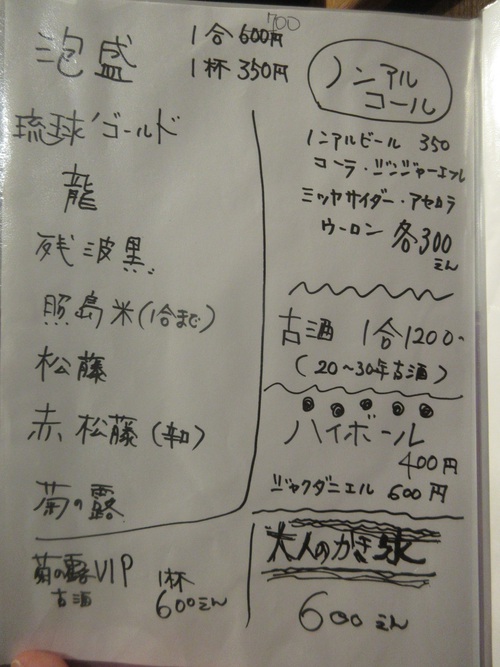 泡盛
700
1合600円
1杯350円
琉球ゴールド
龍
残波黒
照島米(1合まで)
松藤
赤松藤(辛口)
菊の露
菊の露VIP
古酒
1杯
600えん
ノンアル
コール
ノンアルビール 350
コーラ・ジンジャーエール
ミツヤサイダー・アセロラ
ウーロン 各300
えん
古酒 1合1200-
(20~30年古酒)
ハイボール
400円
ジャクダニエル 600円
大人のかき氷
600えん